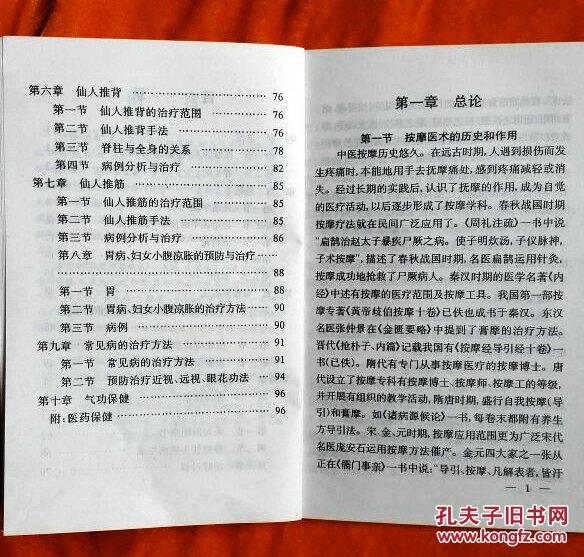 第六章 仙人推背 …………………… 76
第一节 仙人推背的治疗范围 …………… 76
第二节 仙人推背手法 …………………… 76
第三节 脊柱与全身的关系 ……………… 78
第四节 病例分析与治疗 ………………… 82
第七章 仙人推筋 …………………… 85
第一节 仙人推筋的治疗范围 …………… 85
第二节 仙人推筋手法 …………………… 85
第三节 病例分析与治疗 ………………… 86
第八章 胃病、妇女小腹凉胀的预防与治疗 ……
…………………… 88
第一节 胃 …………………… 88
第二节 胃病、妇女小腹凉胀的治疗方法 …… 90
第三节 病例 …………………… 90
第九章 常见病的治疗方法 …………………… 91
第一节 常见病的治疗方法 ……………… 91
第二节 预防治疗近视、远视、眼花功法 …… 94
第十章 气功保健 …………………… 96
附:医药保健 …………………… 96
第一章 总论
第一节 按摩医术的历史和作用
中医按摩历史悠久。在远古时期,人遇到损伤而发
生疼痛时,本能地用手去抚摩痛处,感到疼痛减轻或消
失。经过长期的实践后,认识了抚摩的作用,成为自觉
的医疗活动,以后逐步形成了按摩学科。春秋战国时期
按摩疗法就在民间广泛应用了。《周礼注疏》一书中说
“扁鹊治赵太子暴疾尸厥之病。使子明炊汤,子仪脉神,
子术按摩”,描述了春秋战国时期,名医扁鹊运用针灸、
按摩成功地抢救了尸厥病人。秦汉时期的医学名著《内
经》中述有按摩的医疗范围及按摩工具。我国第一部按
摩专著《黄帝歧伯按摩十卷》已佚也成书于秦汉。东汉
名医张仲景在《金匮要略》中提到了膏摩的治疗方法。
晋代《抢朴子、内篇》记载我国有《按摩经导引经十卷》一
书(已佚)。隋代有专门从事按摩医疗的按摩博士。唐
代设立了按摩专科有按摩博士、按摩师、按摩工的等级,
并开展有组织的教学活动,隋唐时期,盛行自我按摩(导
引)和膏摩。如《诸病源候论》一书,每卷末都附有养生
方导引法。宋、金、元时期,按摩应用范围更为广泛宋代
名医庞安石运用按摩方法催产。金元四大家之一张从
正在《儒门事亲》一书中说:“导引、按摩、凡解表者,皆汗
— 1 —
孔夫子旧书网